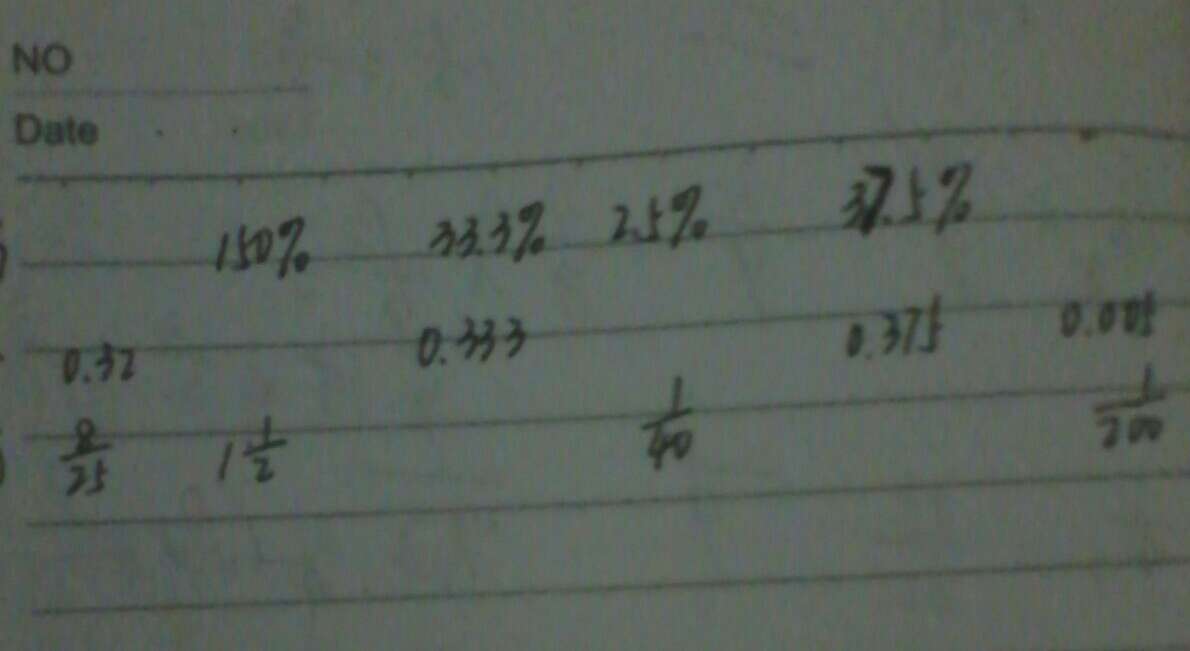 NO
Date
150% 33.3% 2.5% 37.5%
0.32 0.333 0.375 0.005
8/25 1 1/2 1/40 1/200